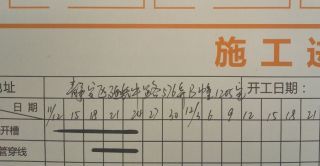 施工进
址 静安区延长中路576弄 1205室 开工日期：
日期 11/12 15 18 21 24 27 30 12/3 6 9 12 15 18 21
开槽
管穿线